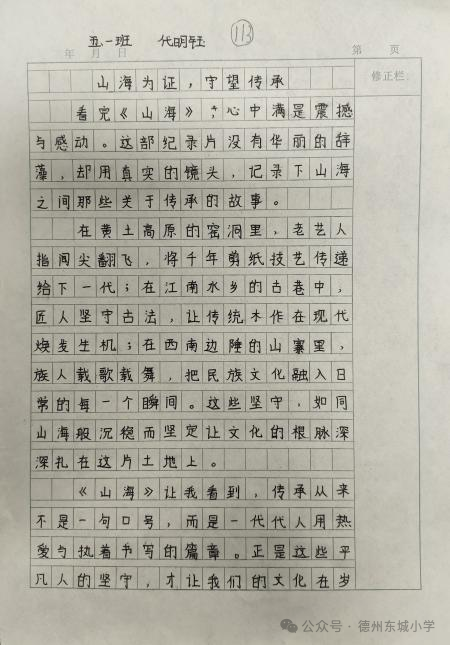 五一班 代明钰 113
年 月 日 第 页
修正栏:
山海为证,守望传承
看完《山海》,心中满是震撼
与感动。这部纪录片没有华丽的辞
藻,却用真实的镜头,记录下山海
之间那些关于传承的故事。
在黄土高原的窑洞里,老艺人
指间尖翻飞,将千年剪纸技艺传递
给下一代;在江南水乡的古巷中,
匠人坚守古法,让传统木作在现代
焕发生机;在西南边陲的山寨里,
族人载歌载舞,把民族文化融入日
常的每一个瞬间。这些坚守,如同
山海般沉稳而坚定让文化的根脉深
深扎在这片土地上。
《山海》让我看到,传承从来
不是一句口号,而是一代代人用热
爱与执着书写的篇章。正是这些平
凡人的坚守,才让我们的文化在岁
公众号·德州东城小学